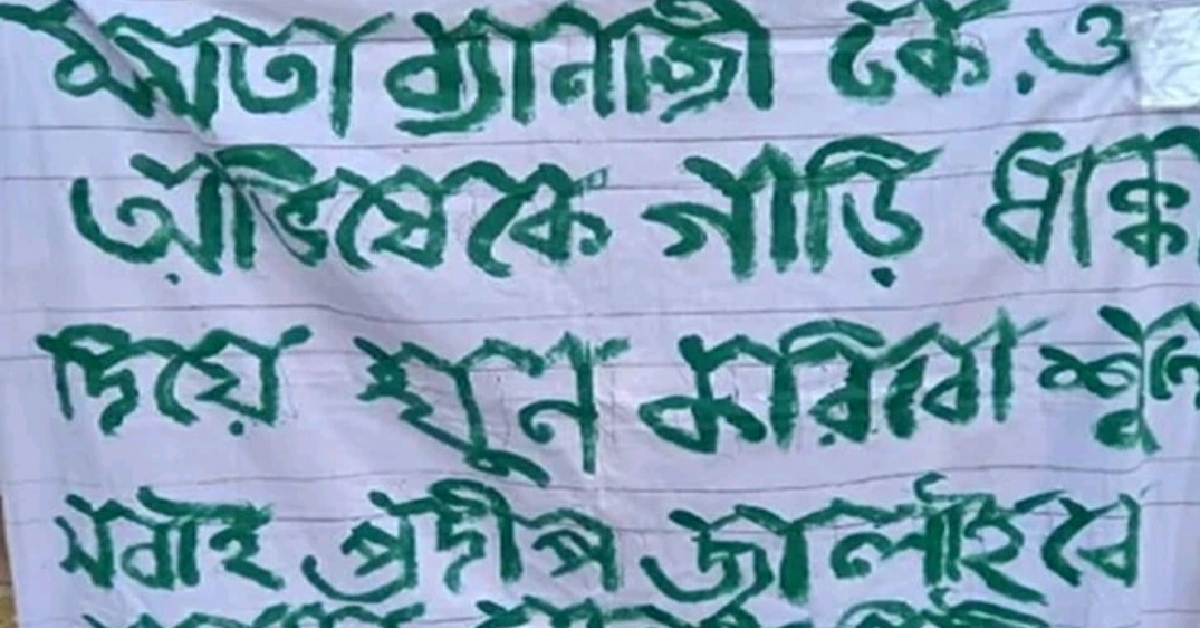 মমতা ব্যানার্জী কে. ও
অভিষেকে গাড়ি ধাক্কা
দিয়ে খুন করিবো
সবাই প্রদীপ জ্বালাইবে